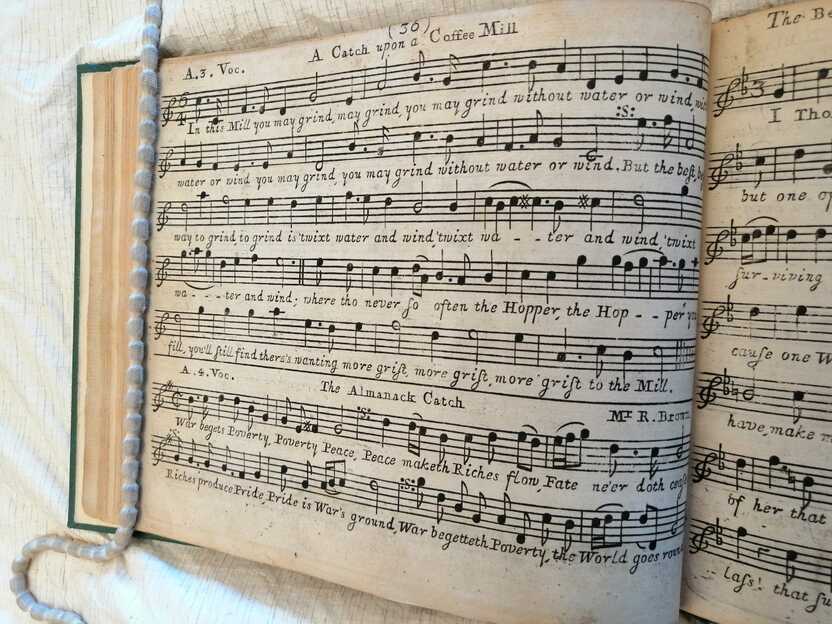 (36)
A Catch upon a Coffee Mill
A. 3. Voc.
In this Mill you may grind, may grind, you may grind without water or wind,
:S:
water or wind you may grind, you may grind without water or wind. But the beſt,
way to grind to grind is 'twixt water and wind 'twixt wa - - ter and wind, 'twixt
wa - - - ter and wind; where tho never ſo often the Hopper, the Hop - - per you
fill, you'll ſtill find there's wanting more griſt, more griſt, more griſt to the Mill.
A. 4. Voc.
The Almanack Catch
Mr R. Brown
:S:
War begets Poverty, Poverty Peace, Peace maketh Riches flow, Fate ne'er doth ceaſe
:S:
Riches produce Pride, Pride is War's ground, War begetteth Poverty, the World goes round
The Be
3
I Tho
but one of
ſur-viving
cauſe one W
have, make m
of her that
laſs! that ſu